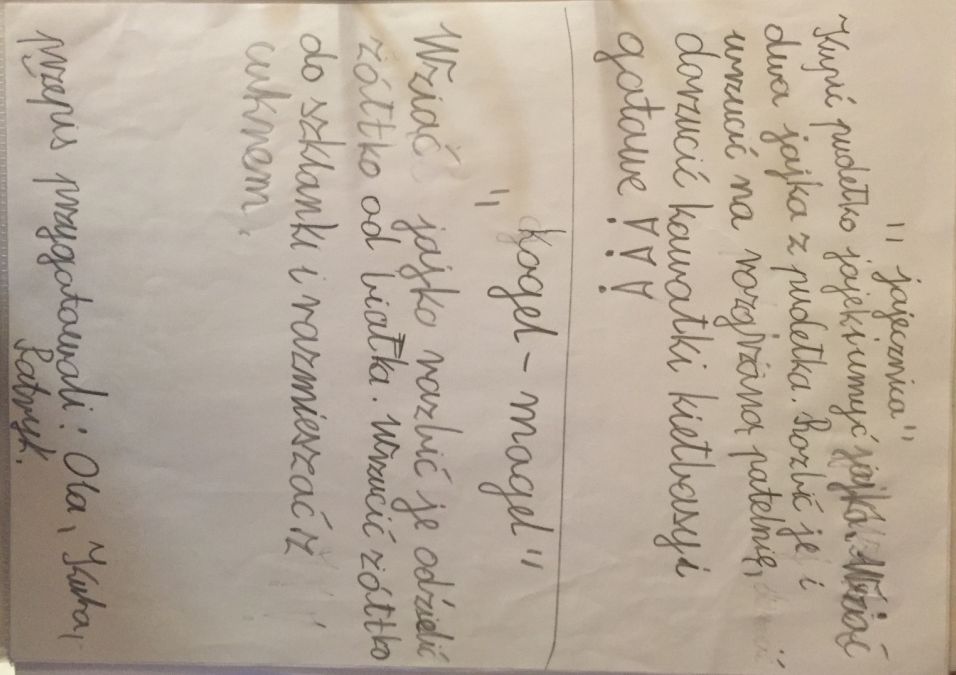 "jajecznica"
Kupić pudełko jajek i umyć jajka. Wziąść
dwa jajka z pudełka. Rozbić je i
wrzucić na rozgrzaną patelnię,
dorzucić kawałki kiełbasy i
gotowe!!!
"Kogel-mogel"
Wziąść jajko rozbić je odzielić
żółtko od białka. Wrzucić żółtko
do szklanki i rozmieszać z
cukrem.
przepis przygotowali: Ola, Kuba,
Patryk.